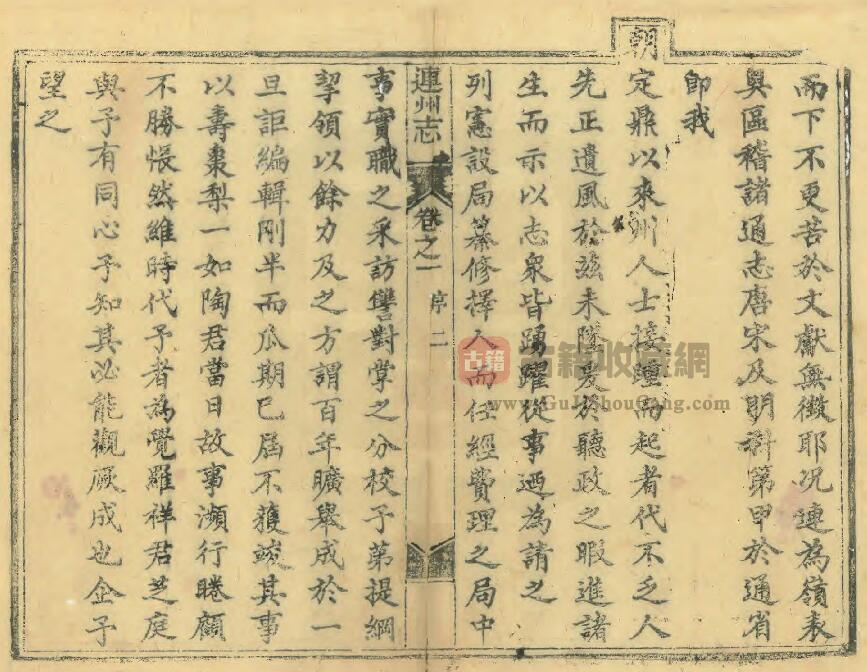 而下不更苦於文獻無徵耶况連為嶺表
奥區稽諸通志唐宋及明科第甲於通省
即我
朝定鼎以來州人士接踵而起者代不乏人
先正遺風於兹未墜爰於聽政之暇進諸
生而示以志衆皆踴躍從事廼為請之
列憲設局纂修擇人而任經費理之局中
連州志 卷之一 序 二
事實職之采訪讐對掌之分校予第提綱
挈領以餘力及之方謂百年曠舉成於一
旦詎編輯剛半而瓜期已屆不獲竣其事
以壽棗梨一如陶君當日故事瀕行睠顧
不勝悵然維時代予者為覺羅祥君芝庭
與予有同心予知其必能觀厥成也企予
望之
古籍
古籍收藏網
www.GuJiShouCang.com